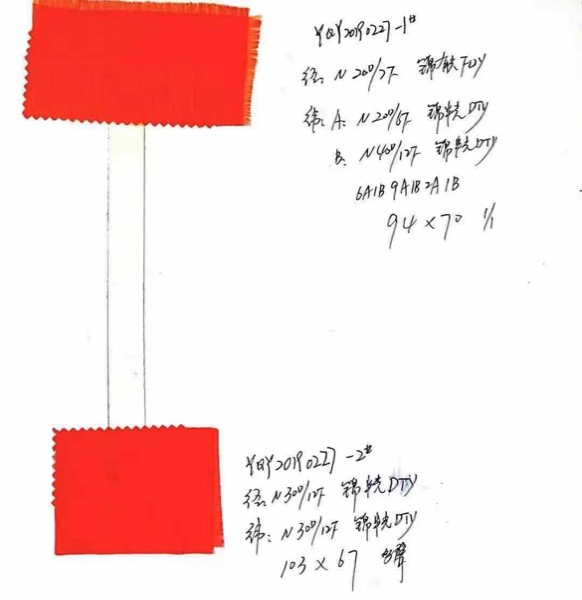 YQY20190227-1#
经: N 20D/7F 锦有光FDY
纬: A: N 20D/6F 锦半光DTY
B: N40D/12F 锦半光DTY
6A1B9A1B2A1B
94×70 1/1
YQY20190227-2#
经: N30D/12F 锦半光DTY
纬: N30D/12F 锦半光DTY
103×67